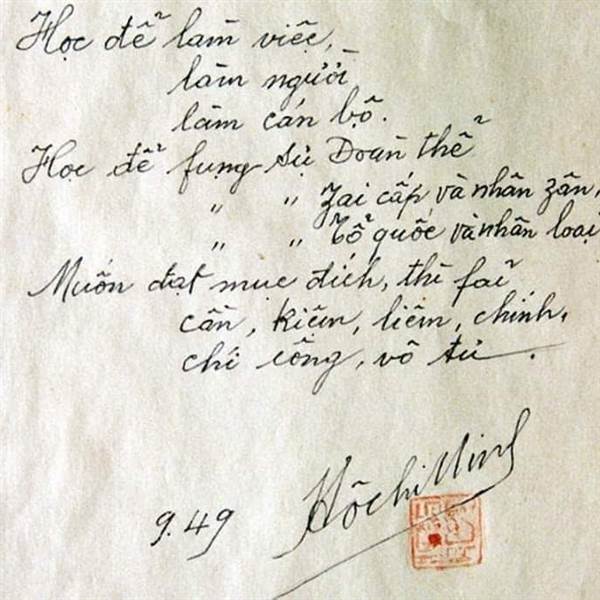 Học để làm việc,
làm người,
làm cán bộ.
Học để fụng sự Đoàn thể
" " Zai cấp và nhân zân,
" " Tổ quốc và nhân loại
Muốn đạt mục đích, thì fải
cần, kiệm, liêm, chính,
chí công, vô tư.
9.49 Hồ Chí Minh